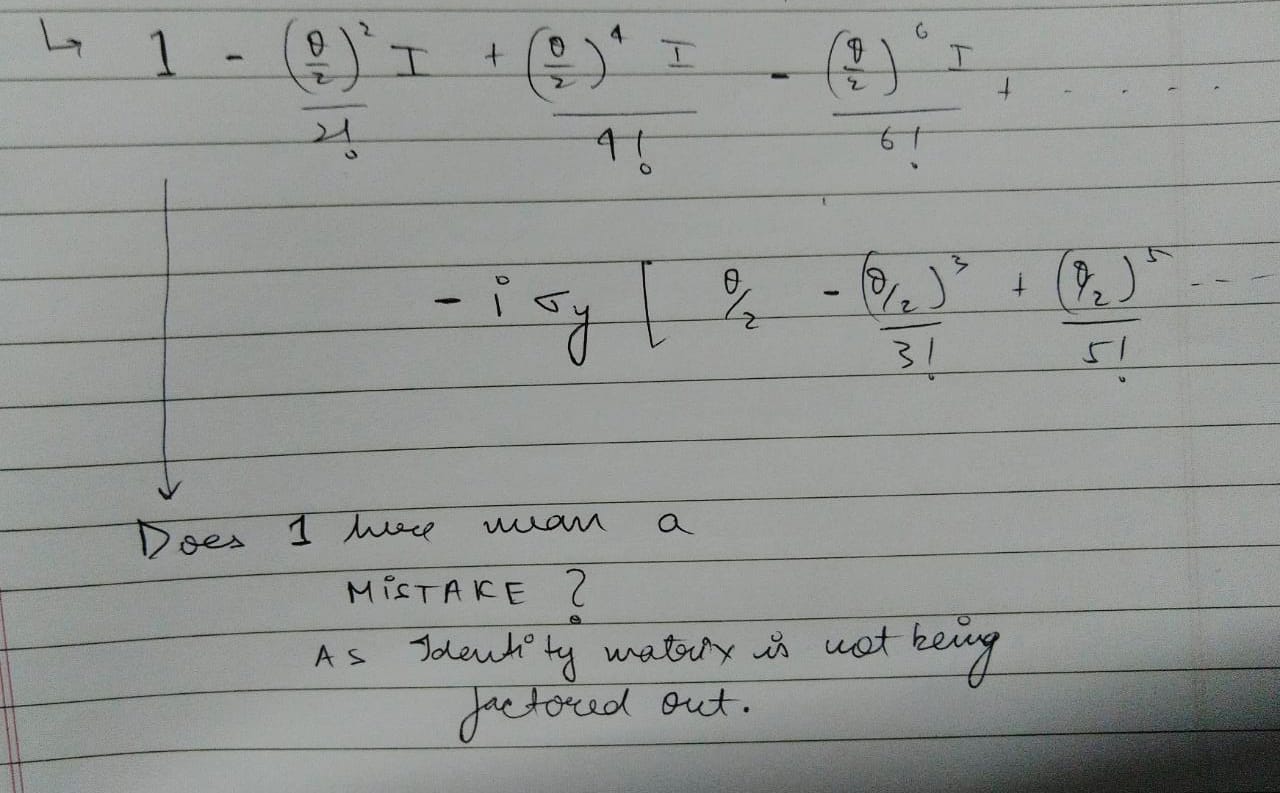 ↳ 1 - (θ/2)² I / 2! + (θ/2)⁴ I / 4! - (θ/2)⁶ I / 6! + . . . . .
- i σy [ θ/2 - (θ/2)³ / 3! + (θ/2)⁵ / 5! - - -
Does 1 here mean a
MISTAKE ?
As Identity matrix is not being
factored out.